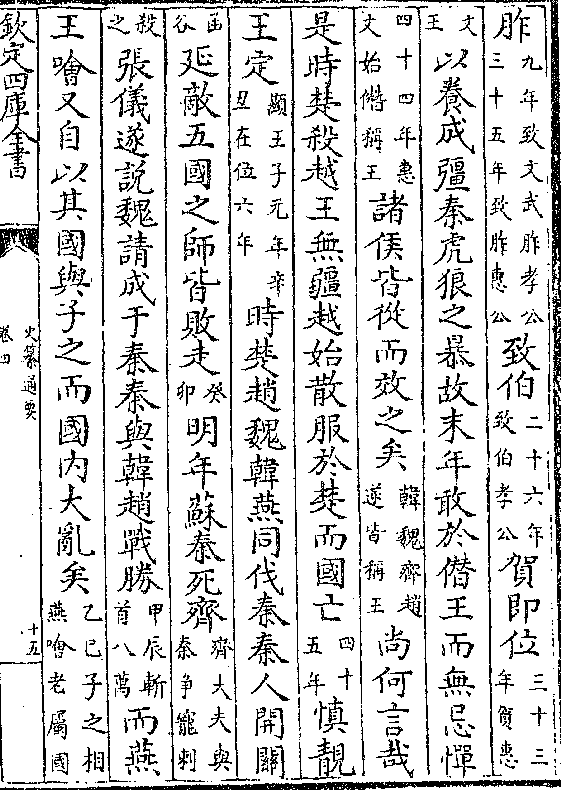 胙九年致文武胙孝公三十五年致胙惠公致伯二十六年致伯孝公賀即位三十三年賀惠
文王以養成彊秦虎狼之暴故末年敢於僭王而無忌憚
四十四年惠文始僭稱王諸侯皆從而效之矣韓魏齊趙遂皆稱王尚何言哉
是時楚殺越王無疆越始散服於楚而國亡四十五年慎靚
王定顯王子元年辛丑在位六年時楚趙魏韓燕同伐秦秦人開關
函谷延敵五國之師皆敗走癸卯明年蘇秦死齊齊大夫與秦爭寵刺
殺之張儀遂說魏請成于秦秦與韓趙戰勝甲辰斬首八萬而燕
王噲又自以其國與子之而國內大亂矣乙巳子之相燕噲老屬國
欽定四庫全書
史纂通要
卷四
十五